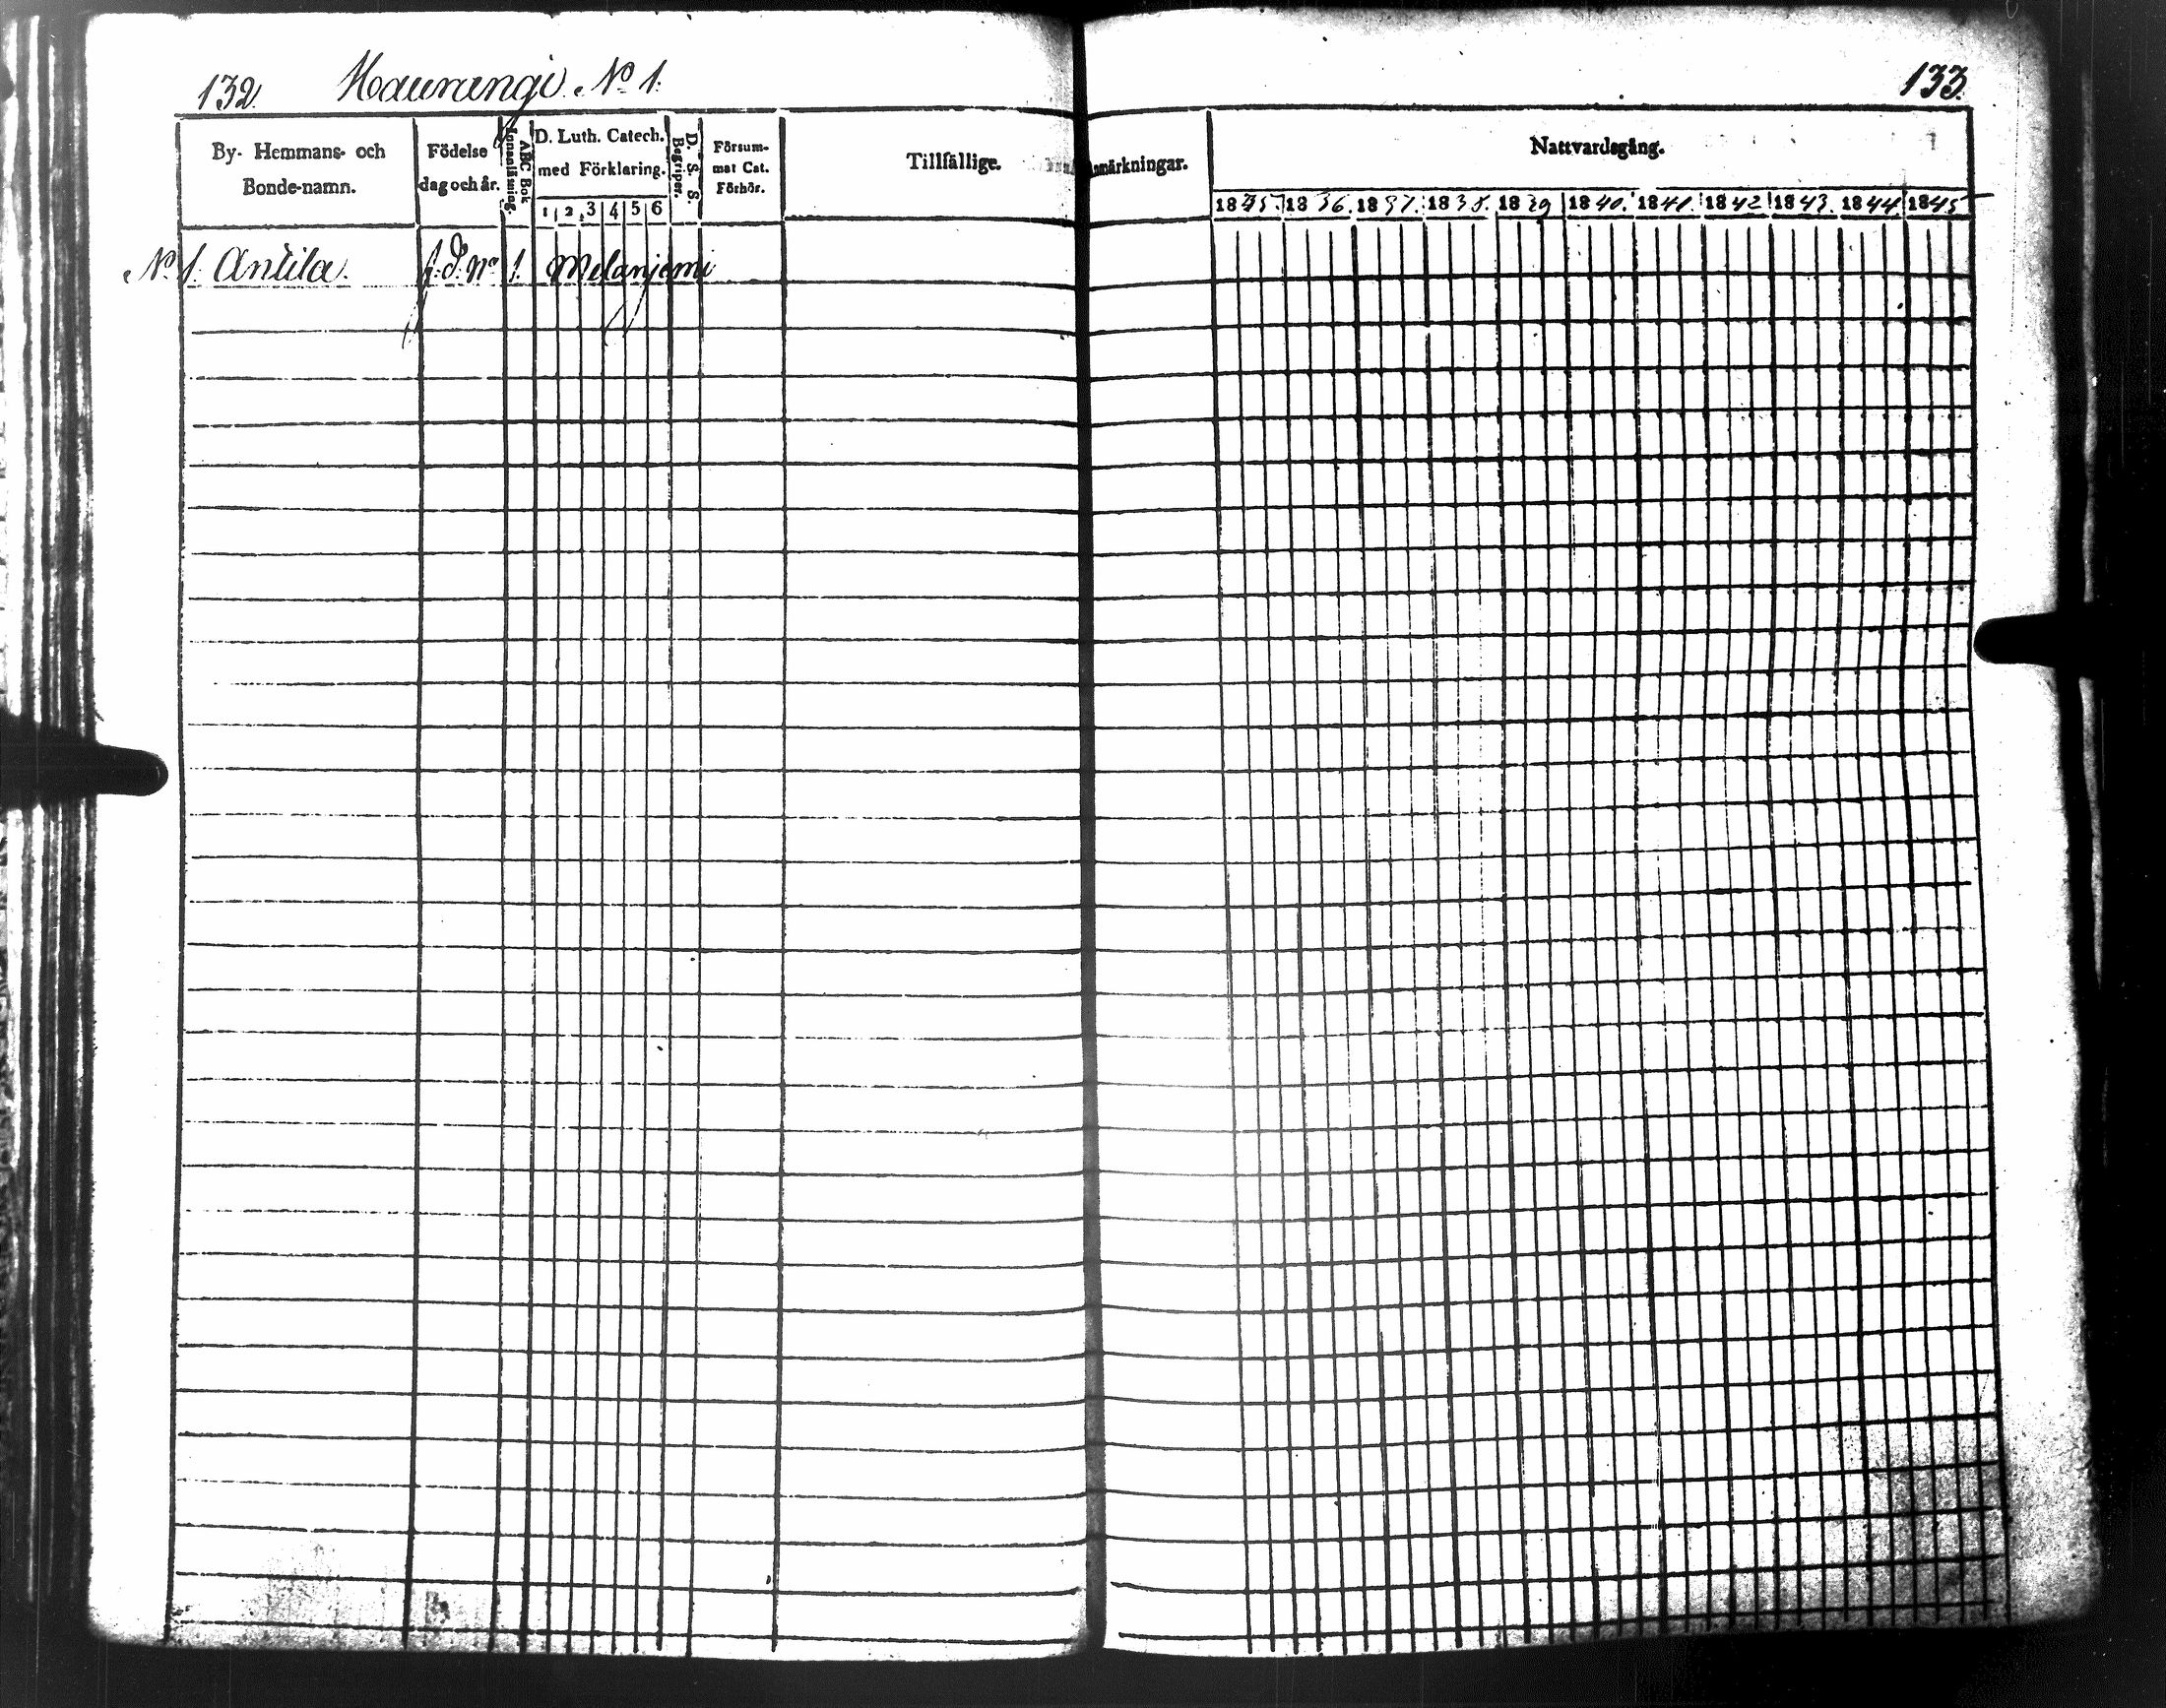 132. Haurungi. No 1.
133.
By- Hemmans- och Bonde-namn.
Födelse dag och år.
Innanläsning.
ABC Bok
D. Luth. Catech. med Förklaring.
1 2 3 4 5 6
D. S. S. Begriper.
Försum- mat Cat. Förhör.
Tillfällige.
Anmärkningar.
Nattvardsgång.
1835. 1836. 1837. 1838. 1839 1840. 1841. 1842 1843. 1844 1845
No 1. Antila. No 1. Melanjemi